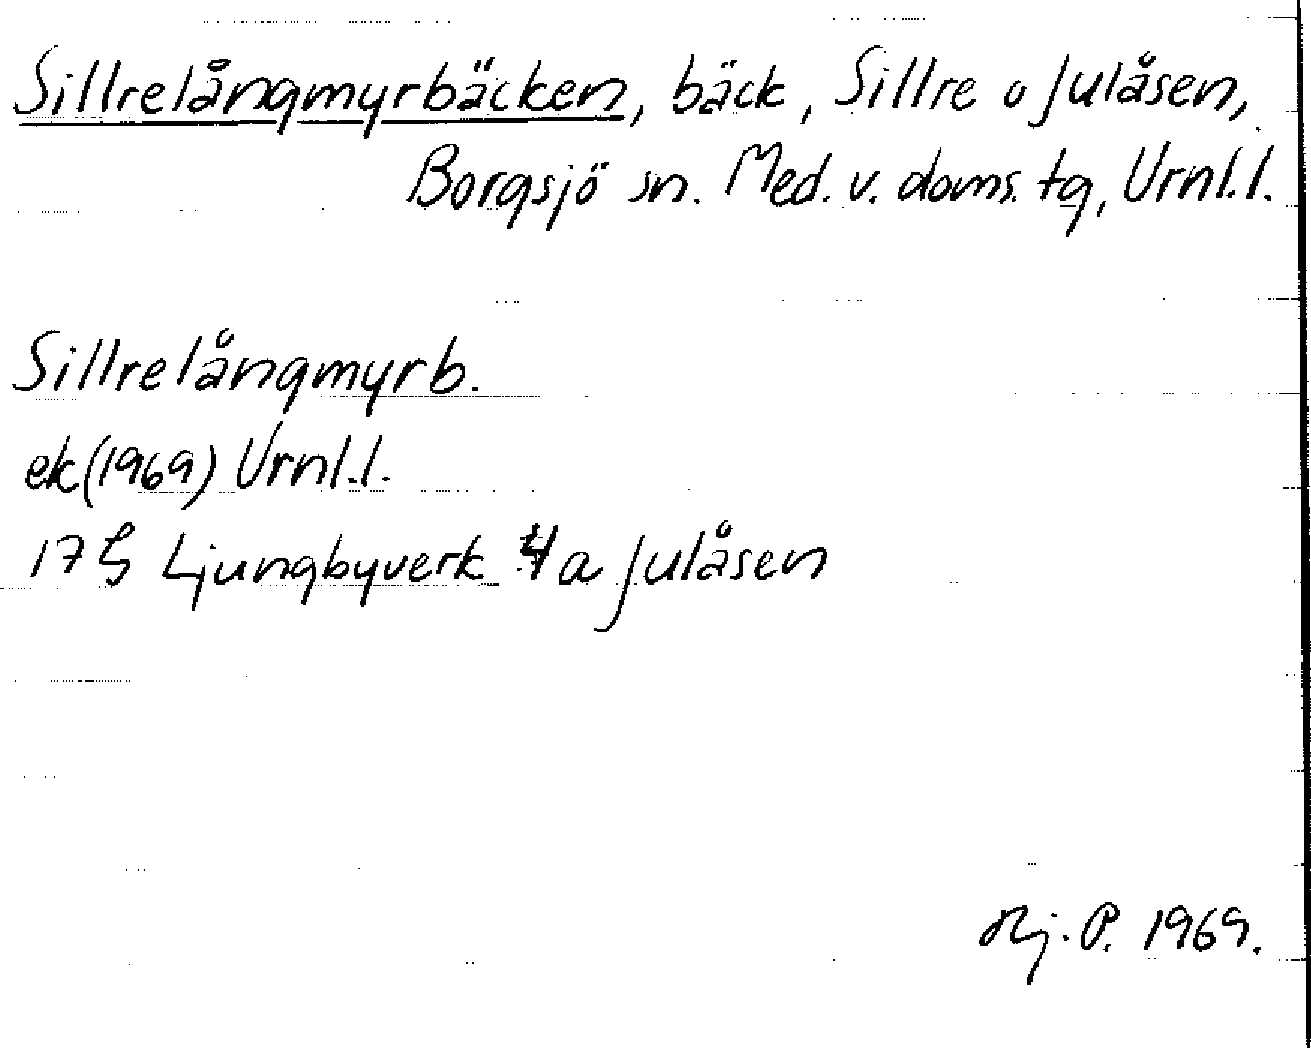 Sillrelångmyrbäcken, bäck, Sillre o Julåsen,
Borgsjö sn. Med. v. doms. tg, Urnl.l.
Sillrelångmyrb.
ek(1969) Urnl.l.
17 Ljungbyverk 4a Julåsen
Hj. P. 1969.